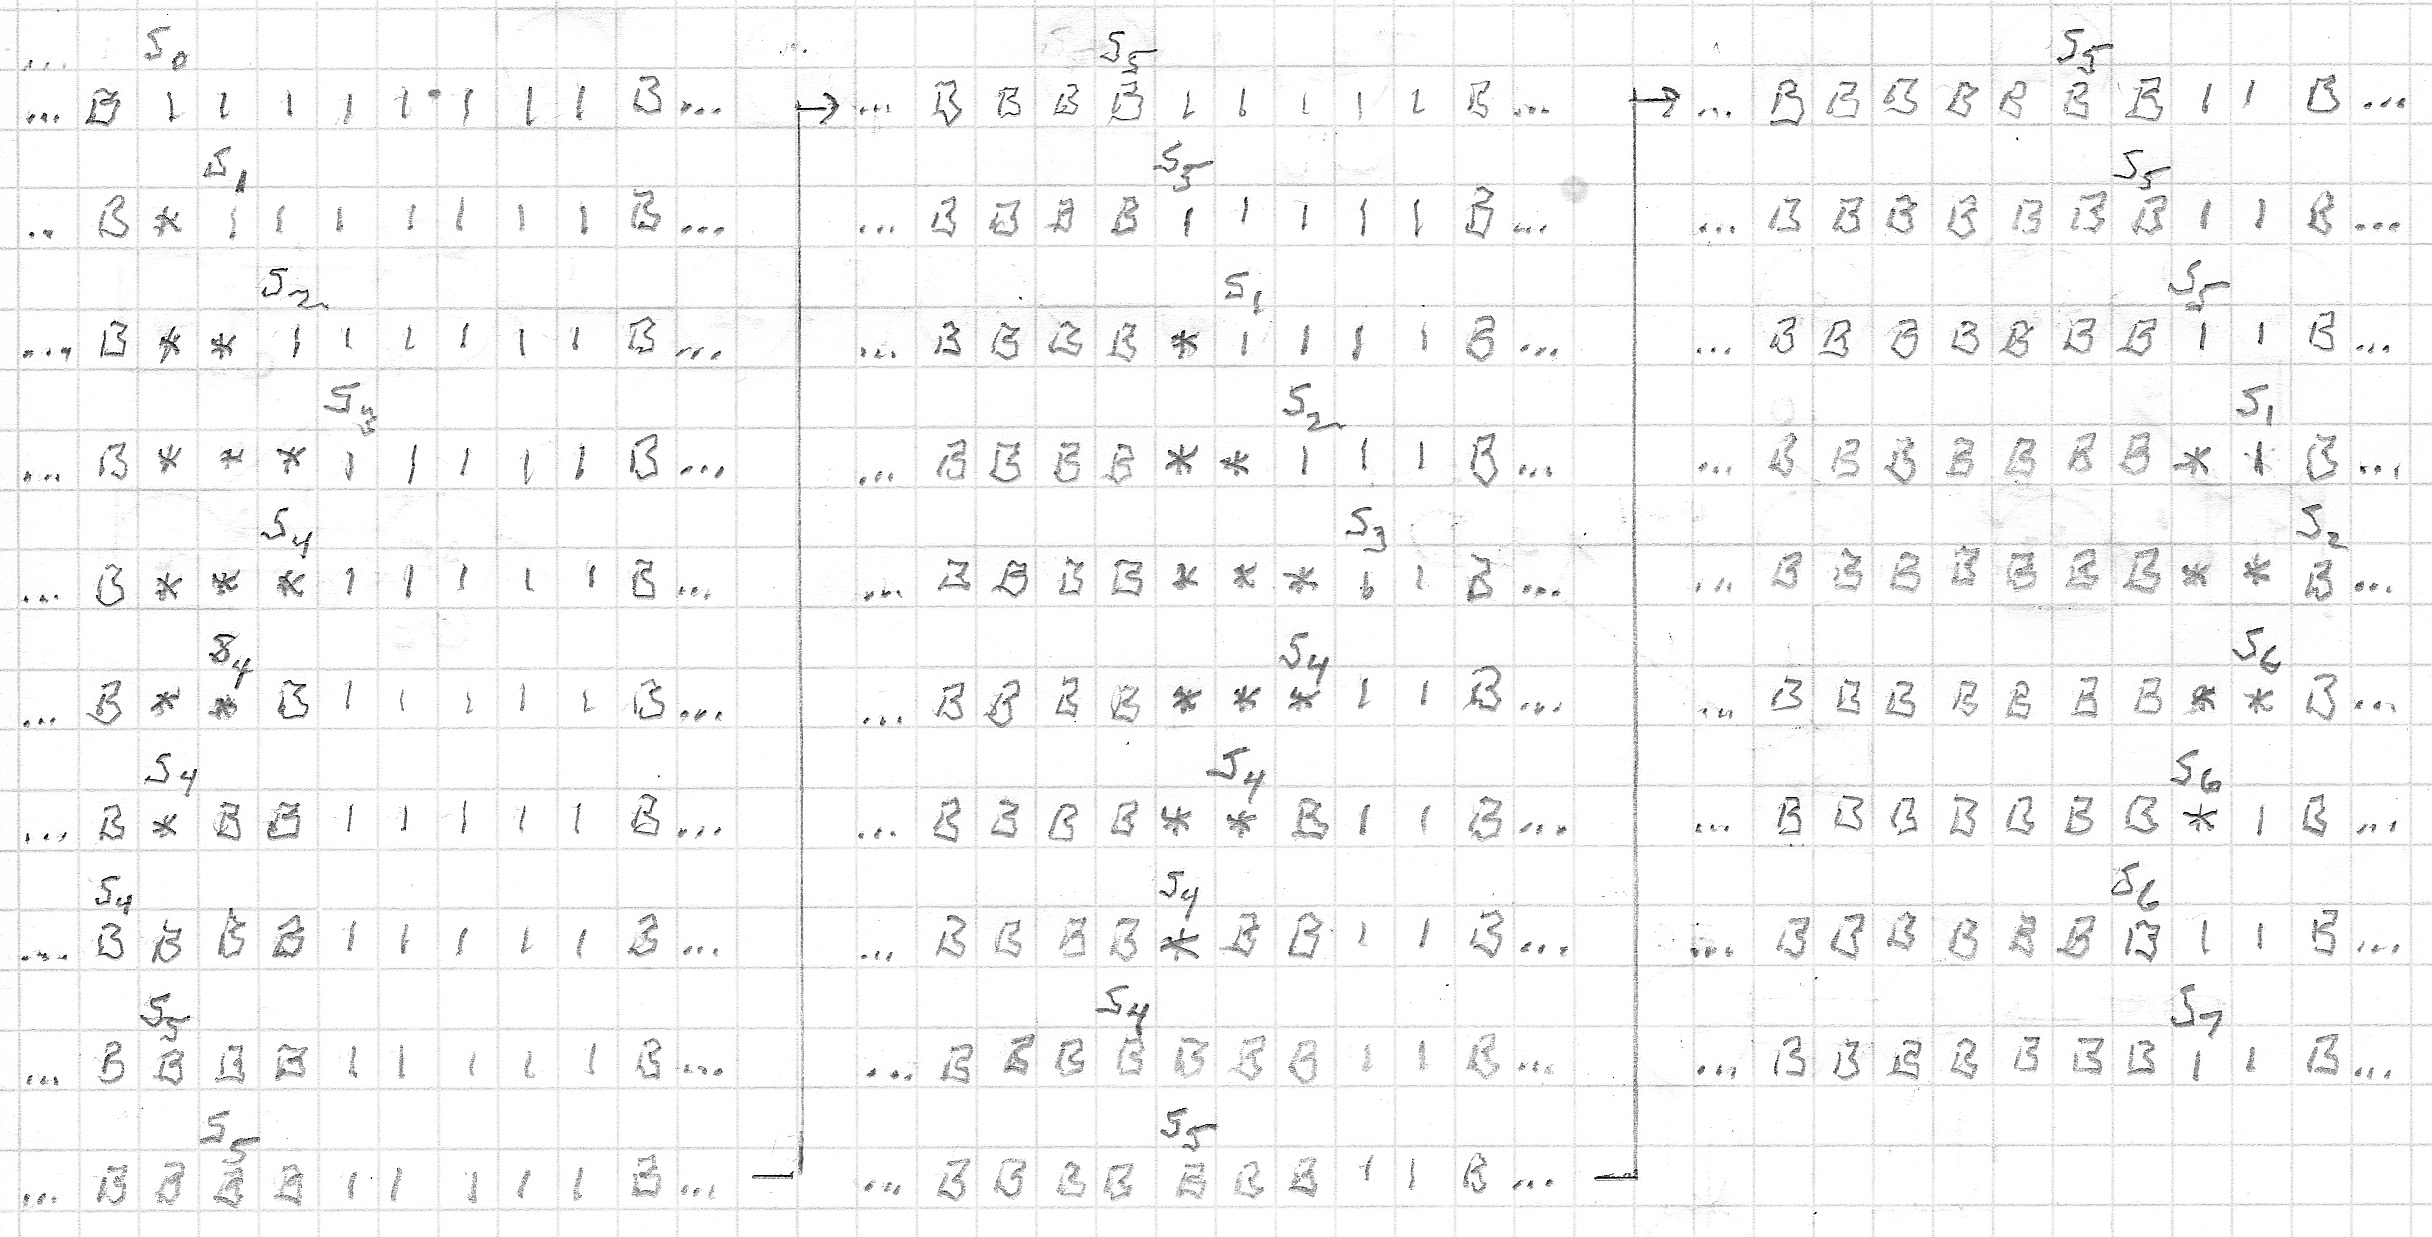 ... S0
... B 1 1 1 1 1 1 1 1 B ...
S1
... B * 1 1 1 1 1 1 1 B ...
S2
... B * * 1 1 1 1 1 1 B ...
S3
... B * * * 1 1 1 1 1 B ...
S4
... B * * * 1 1 1 1 1 B ...
S4
... B * * B 1 1 1 1 1 B ...
S4
... B * B B 1 1 1 1 1 B ...
S4
... B B B B 1 1 1 1 1 B ...
S5
... B B B B 1 1 1 1 1 B ...
S5
... B B B B 1 1 1 1 1 B ...
S5
→ ... B B B B 1 1 1 1 1 B ...
S5
... B B B B 1 1 1 1 1 B ...
S1
... B B B B * 1 1 1 1 B ...
S2
... B B B B * * 1 1 1 B ...
S3
... B B B B * * * 1 1 B ...
S4
... B B B B * * * 1 1 B ...
S4
... B B B B * * B 1 1 B ...
S4
... B B B B * B B 1 1 B ...
S4
... B B B B B B B 1 1 B ...
S5
... B B B B B B B 1 1 B ...
S5
→ ... B B B B B B B 1 1 B ...
S5
... B B B B B B B 1 1 B ...
S5
... B B B B B B B 1 1 B ...
S1
... B B B B B B B * 1 B ...
S2
... B B B B B B B * * B ...
S6
... B B B B B B B * * B ...
S6
... B B B B B B B * 1 B ...
S6
... B B B B B B B 1 1 B ...
S7
... B B B B B B B 1 1 B ...